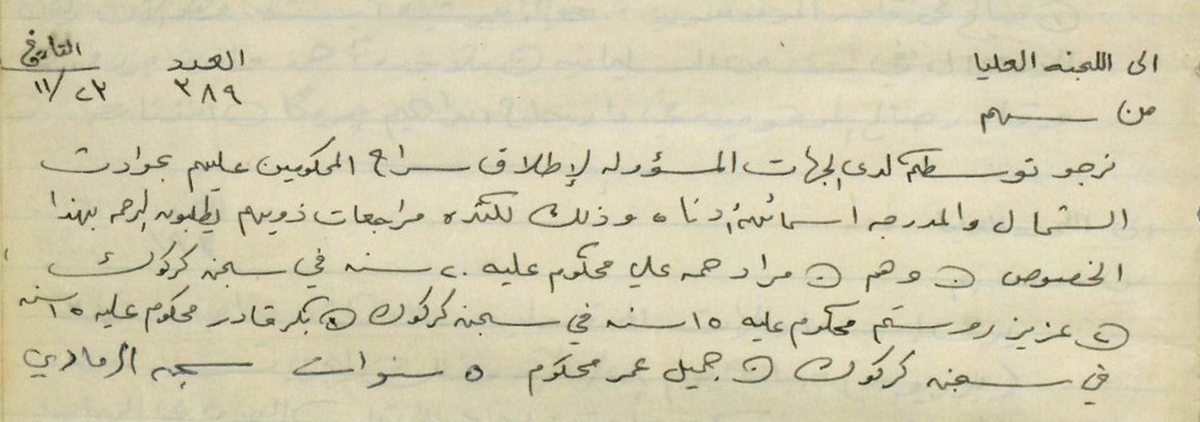 الى اللجنه العليا العدد التاريخ
من سهم ٣٨٩ ٢٣/١١
نرجو توسطكم لدى الجهات المسؤوله لإطلاق سراح المحكومين عليهم بحوادث
الشمال والمدرجه اسمائهم أدناه وذلك لكثره مراجعات ذويهم يطلبون الرحمه بهذا
الخصوص وهم مراد حمه علي محكوم عليه ٢٠ سنه في سجن كركوك
عزيز روستم محكوم عليه ١٥ سنه في سجن كركوك بكر قادر محكوم عليه ١٥ سنه
في سجن كركوك جميل عمر محكوم ٥ سنوات سجن الرمادي